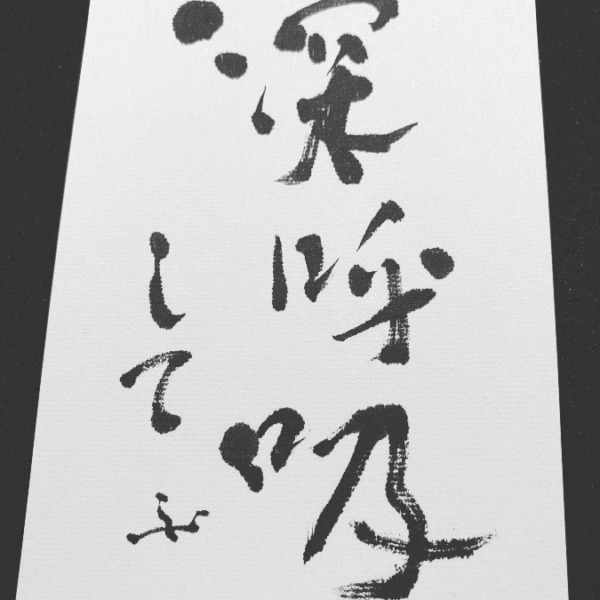 深呼吸
して